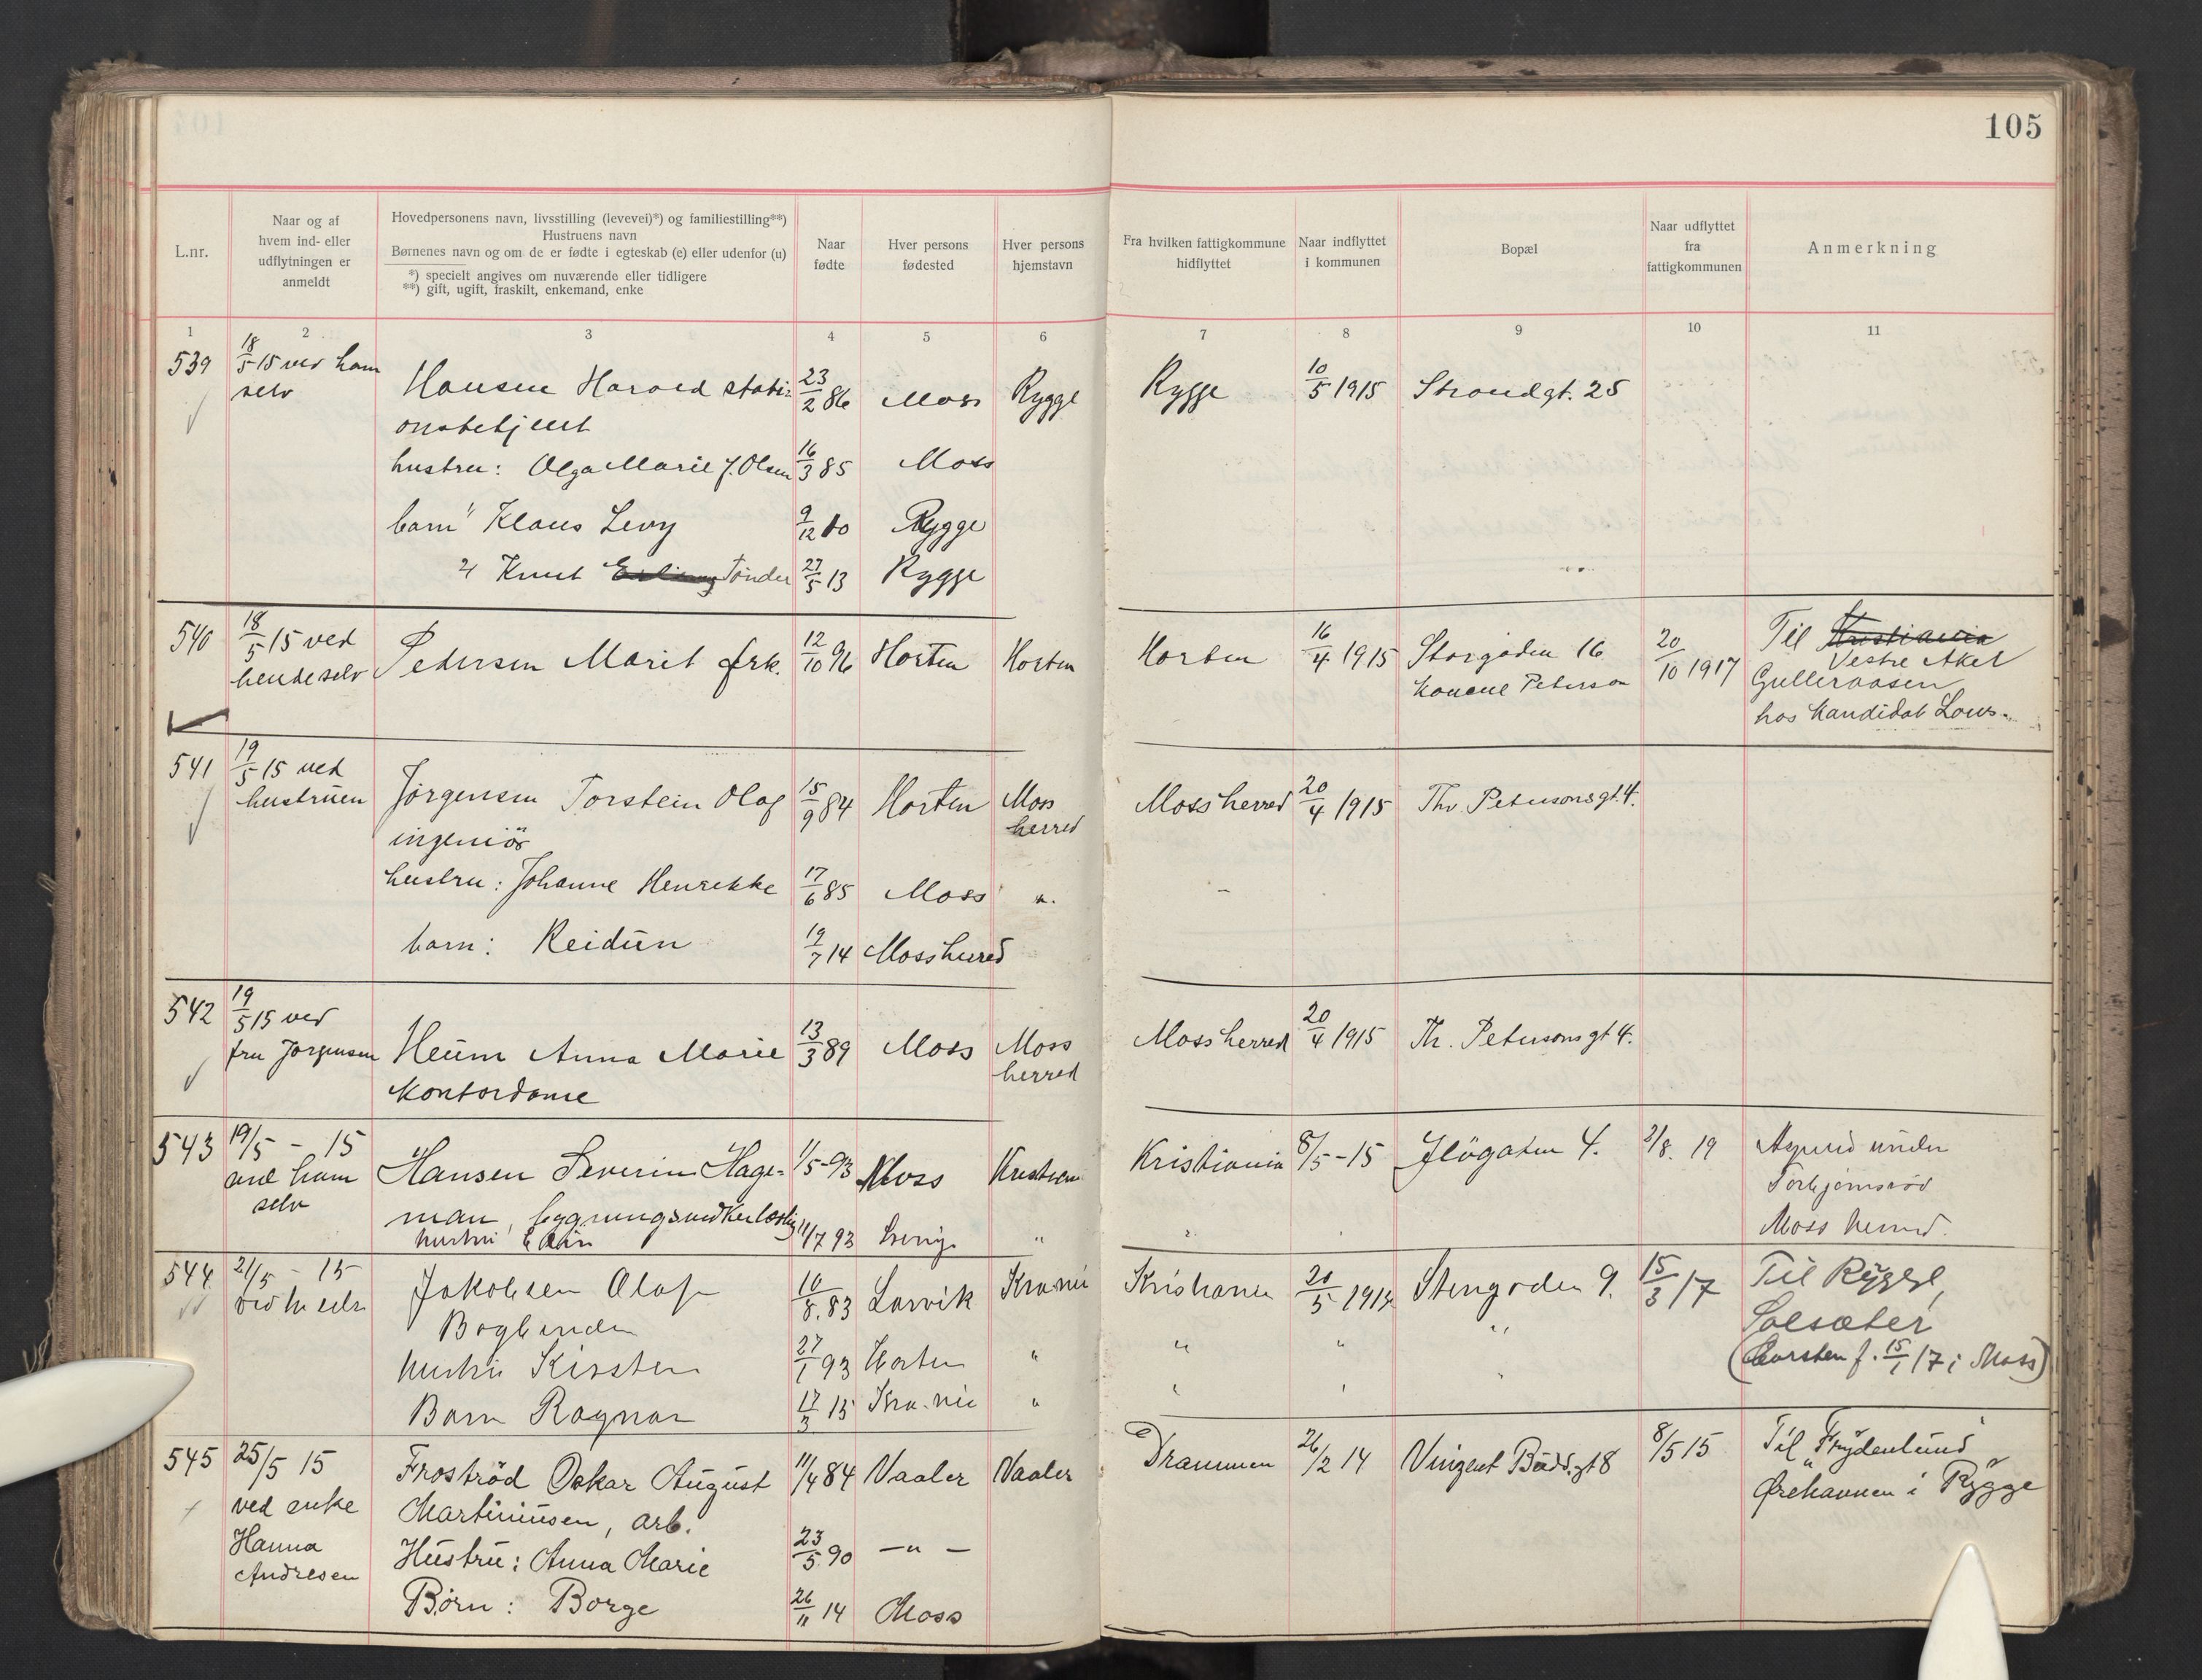 105
L.nr.
Naar og af
hvem ind- eller
udflytningen er
anmeldt
Hovedpersonens navn, livsstilling (levevei)*) og familiestilling**)
Hustruens navn
Børnenes navn og om de er fødte i egteskab (e) eller udenfor (u)
*) specielt angives om nuværende eller tidligere
**) gift, ugift, fraskilt, enkemand, enke
Naar
fødte
Hver persons
fødested
Hver persons
hjemstavn
Fra hvilken fattigkommune
hidflyttet
Naar indflyttet
i kommunen
Bopæl
Naar udflyttet
fra
fattigkommunen
Anmerkning
1 2 3 4 5 6 7 8 9 10 11
539 18/5 15 ved ham Hansen Harald stati- 23/2 86 Moss Rygge Rygge 10/5 1915 Strandgt. 25
selv onsbetjent
hustru: Olga Marie f. Olsen 16/3 85 Moss
barn Klaus Levy 9/12 10 Rygge
" Knut Erling Tønder 27/5 13 Rygge
540 18/5 15 ved Pedersen Marit frk. 12/10 96 Horten Horten Horten 16/4 1915 Storgaden 16 20/10 1917 Til Kristiania
hende selv Peterson Vestre Aker
Gulleraasen
hos kandidat
541 19/5 15 ved Jørgensen Torstein Olaf 15/9 84 Horten Moss herred Mossherred 20/4 1915 Thv. Petersonsgt. 4.
hustruen ingeniör
hustru: Johanne Henrikke 17/6 85 Moss ".
barn: Reidun 19/7 14 Mossherred
542 19/5 15 ved
fru Jørgensen Heum Anna Marie 13/3 89 Moss Moss herred Mossherred 20/4 1915 Th. Petersonsgt 4.
Kontordame
543 19/5 - 15 Hansen Severin Hage- 1/5-93 Moss Kristiania 8/5-15 4. 3/8. 19
ved ham man, Torbjørnsrød
selv hustru 11/7 93 Sverige " Moss herred.
544 21/5 - 15 Jakobsen Olaf 10/8.83 Larvik Kra.nia Kristiania 20/5 1915 Stengaden 9. 15/3/17 Til Rygge,
Bogbinder " " Solsæter
hustru Kirsten 27/1 93 Horten " " " (Carsten f. 15/1/17 i Moss)
Barn Ragnar 17/3 15 Kra.nia "
545 25/5 15 Froströd Oskar August 11/4 84 Vaaler Vaaler Drammen 26/2 14 Vinzent Budds.gt 8 8/5 15 Til "Frydenlund"
ved enke Martiniusen, arb. Ørehavnen i Rygge
Hanna Hustru: Anna Marie 23/5.90 —"—
Andresen
Børn: Borge 26/11 14 Moss